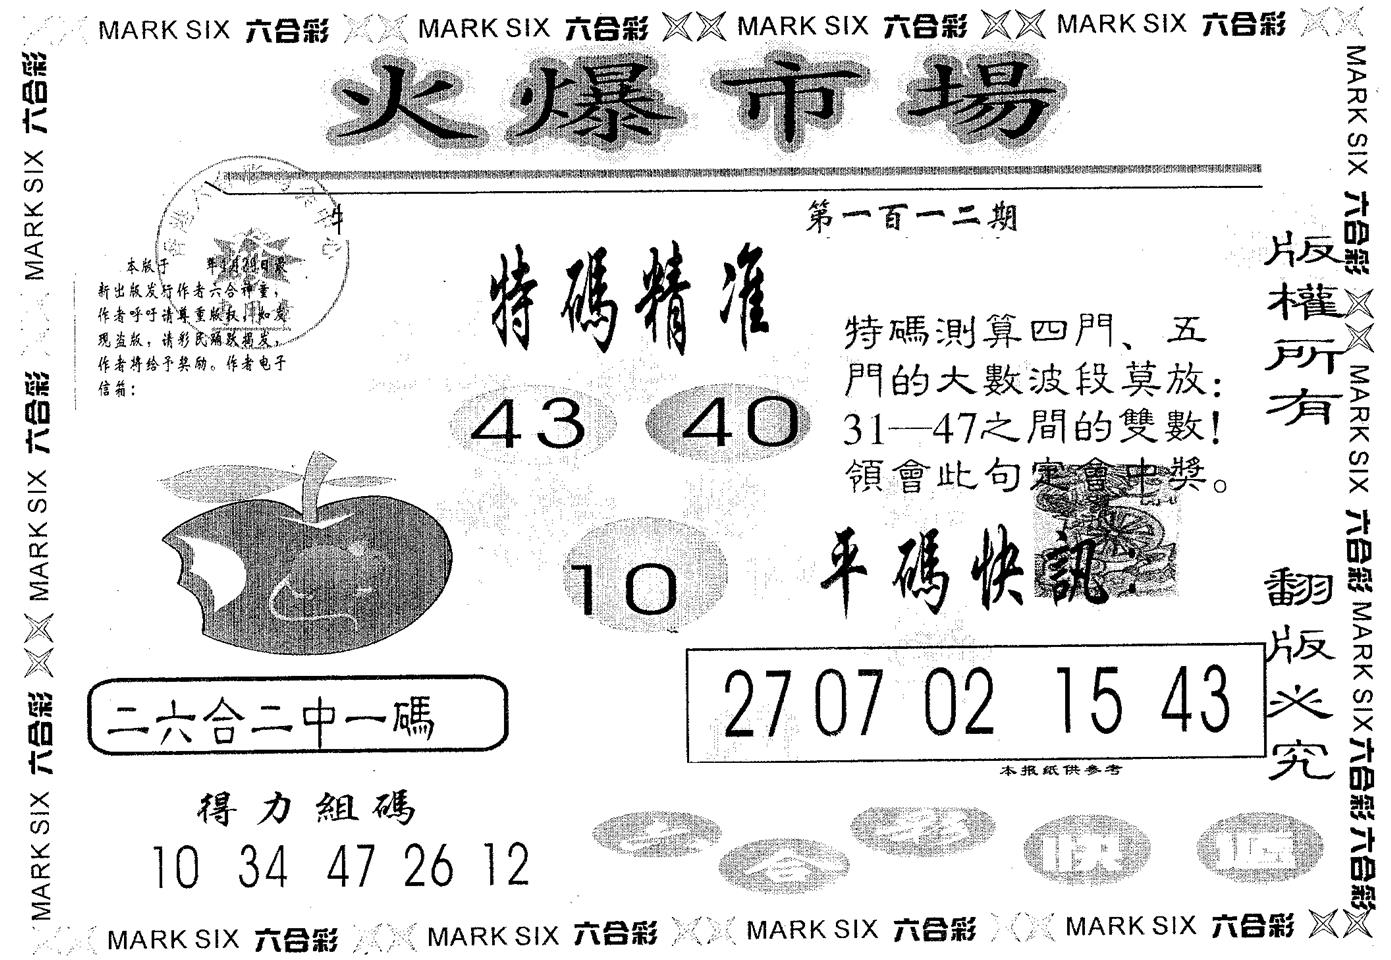 MARK SIX 六合彩 MARK SIX 六合彩 MARK SIX 六合彩 MARK SIX 六合彩
火爆市場
第一百一二期
本版于 年
新出版发行作者六合神童，
作者呼吁请尊重版权，如发
现盗版，请彩民踊跃揭发，
作者将给予奖励。作者电子
信箱：
特碼精准
43 40
10
特碼測算四門、五
門的大數波段莫放：
31—47之間的雙數！
領會此句定會中獎。
平碼快訊：
27 07 02 15 43
本报纸供参考
二六合二中一碼
得力組碼
10 34 47 26 12
六合彩快
版權所有
翻版必究
MARK SIX 六合彩 MARK SIX 六合彩 MARK SIX 六合彩
MARK SIX 六合彩 MARK SIX 六合彩 MARK SIX 六合彩 六合彩
MARK SIX 六合彩 MARK SIX 六合彩 MARK SIX 六合彩 MARK SIX 六合彩